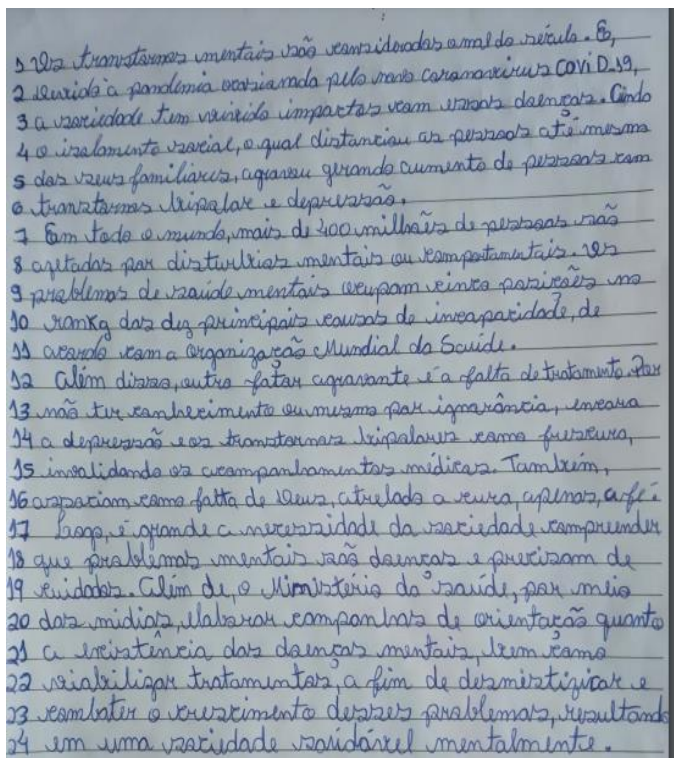 1 Os transtornos mentais são considerados o mal do século. E,
2 devido a pandemia ocasionada pelo novo coronavírus COVID-19,
3 a sociedade tem vivido impactos com essas doenças. Ainda
4 o isolamento social, o qual distanciou as pessoas até mesmo
5 dos seus familiares, agravou gerando aumento de pessoas com
6 transtornos bipolar e depressão.
7 Em todo o mundo, mais de 400 milhões de pessoas são
8 afetados por distúrbios mentais ou comportamentais. Os
9 problemas de saúde mentais ocupam cinco posições no
10 rankg das dez principais causas de incapacidade, de
11 acordo com a Organização Mundial da Saúde.
12 Além disso, outro fator agravante é a falta de tratamento. Por
13 não ter conhecimento ou mesmo por ignorância, encara
14 a depressão e os transtornos bipolares como frescura,
15 invalidando os acompanhamentos médicos. Também,
16 associam como falta de Deus, atrelado a cura, apenas, a fé.
17 Logo, é grande a necessidade da sociedade compreender
18 que problemas mentais são doenças e precisam de
19 cuidados. Além de, o Ministério da saúde, por meio
20 das mídias, elaborar campanhas de orientação quanto
21 a existência das doenças mentais, bem como
22 viabilizar tratamentos, a fim de desmistificar e
23 combater o crescimento desses problemas, resultando
24 em uma sociedade saudável mentalmente.